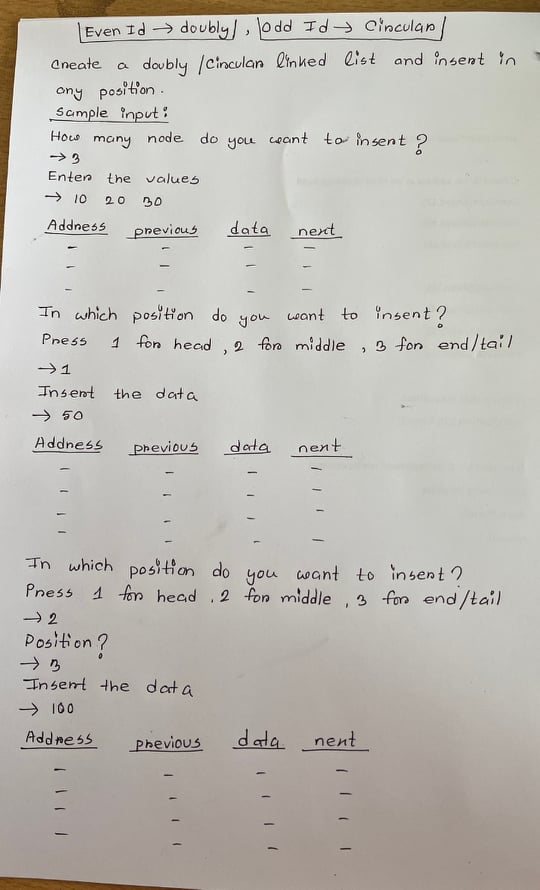 Even Id → doubly, Odd Id → Circular
Create a doubly/circular linked list and insert in
any position.
Sample input:
How many node do you want to insert?
→ 3
Enter the values
→ 10 20 30
Address previous data next
- - - -
- - - -
- - - -
In which position do you want to insert?
Press 1 for head, 2 for middle, 3 for end/tail
→ 1
Insert the data
→ 50
Address previous data next
- - - -
- - - -
- - - -
- - - -
In which position do you want to insert?
Press 1 for head, 2 for middle, 3 for end/tail
→ 2
Position?
→ 3
Insert the data
→ 100
Address previous data next
- - - -
- - - -
- - - -
- - - -
- - -